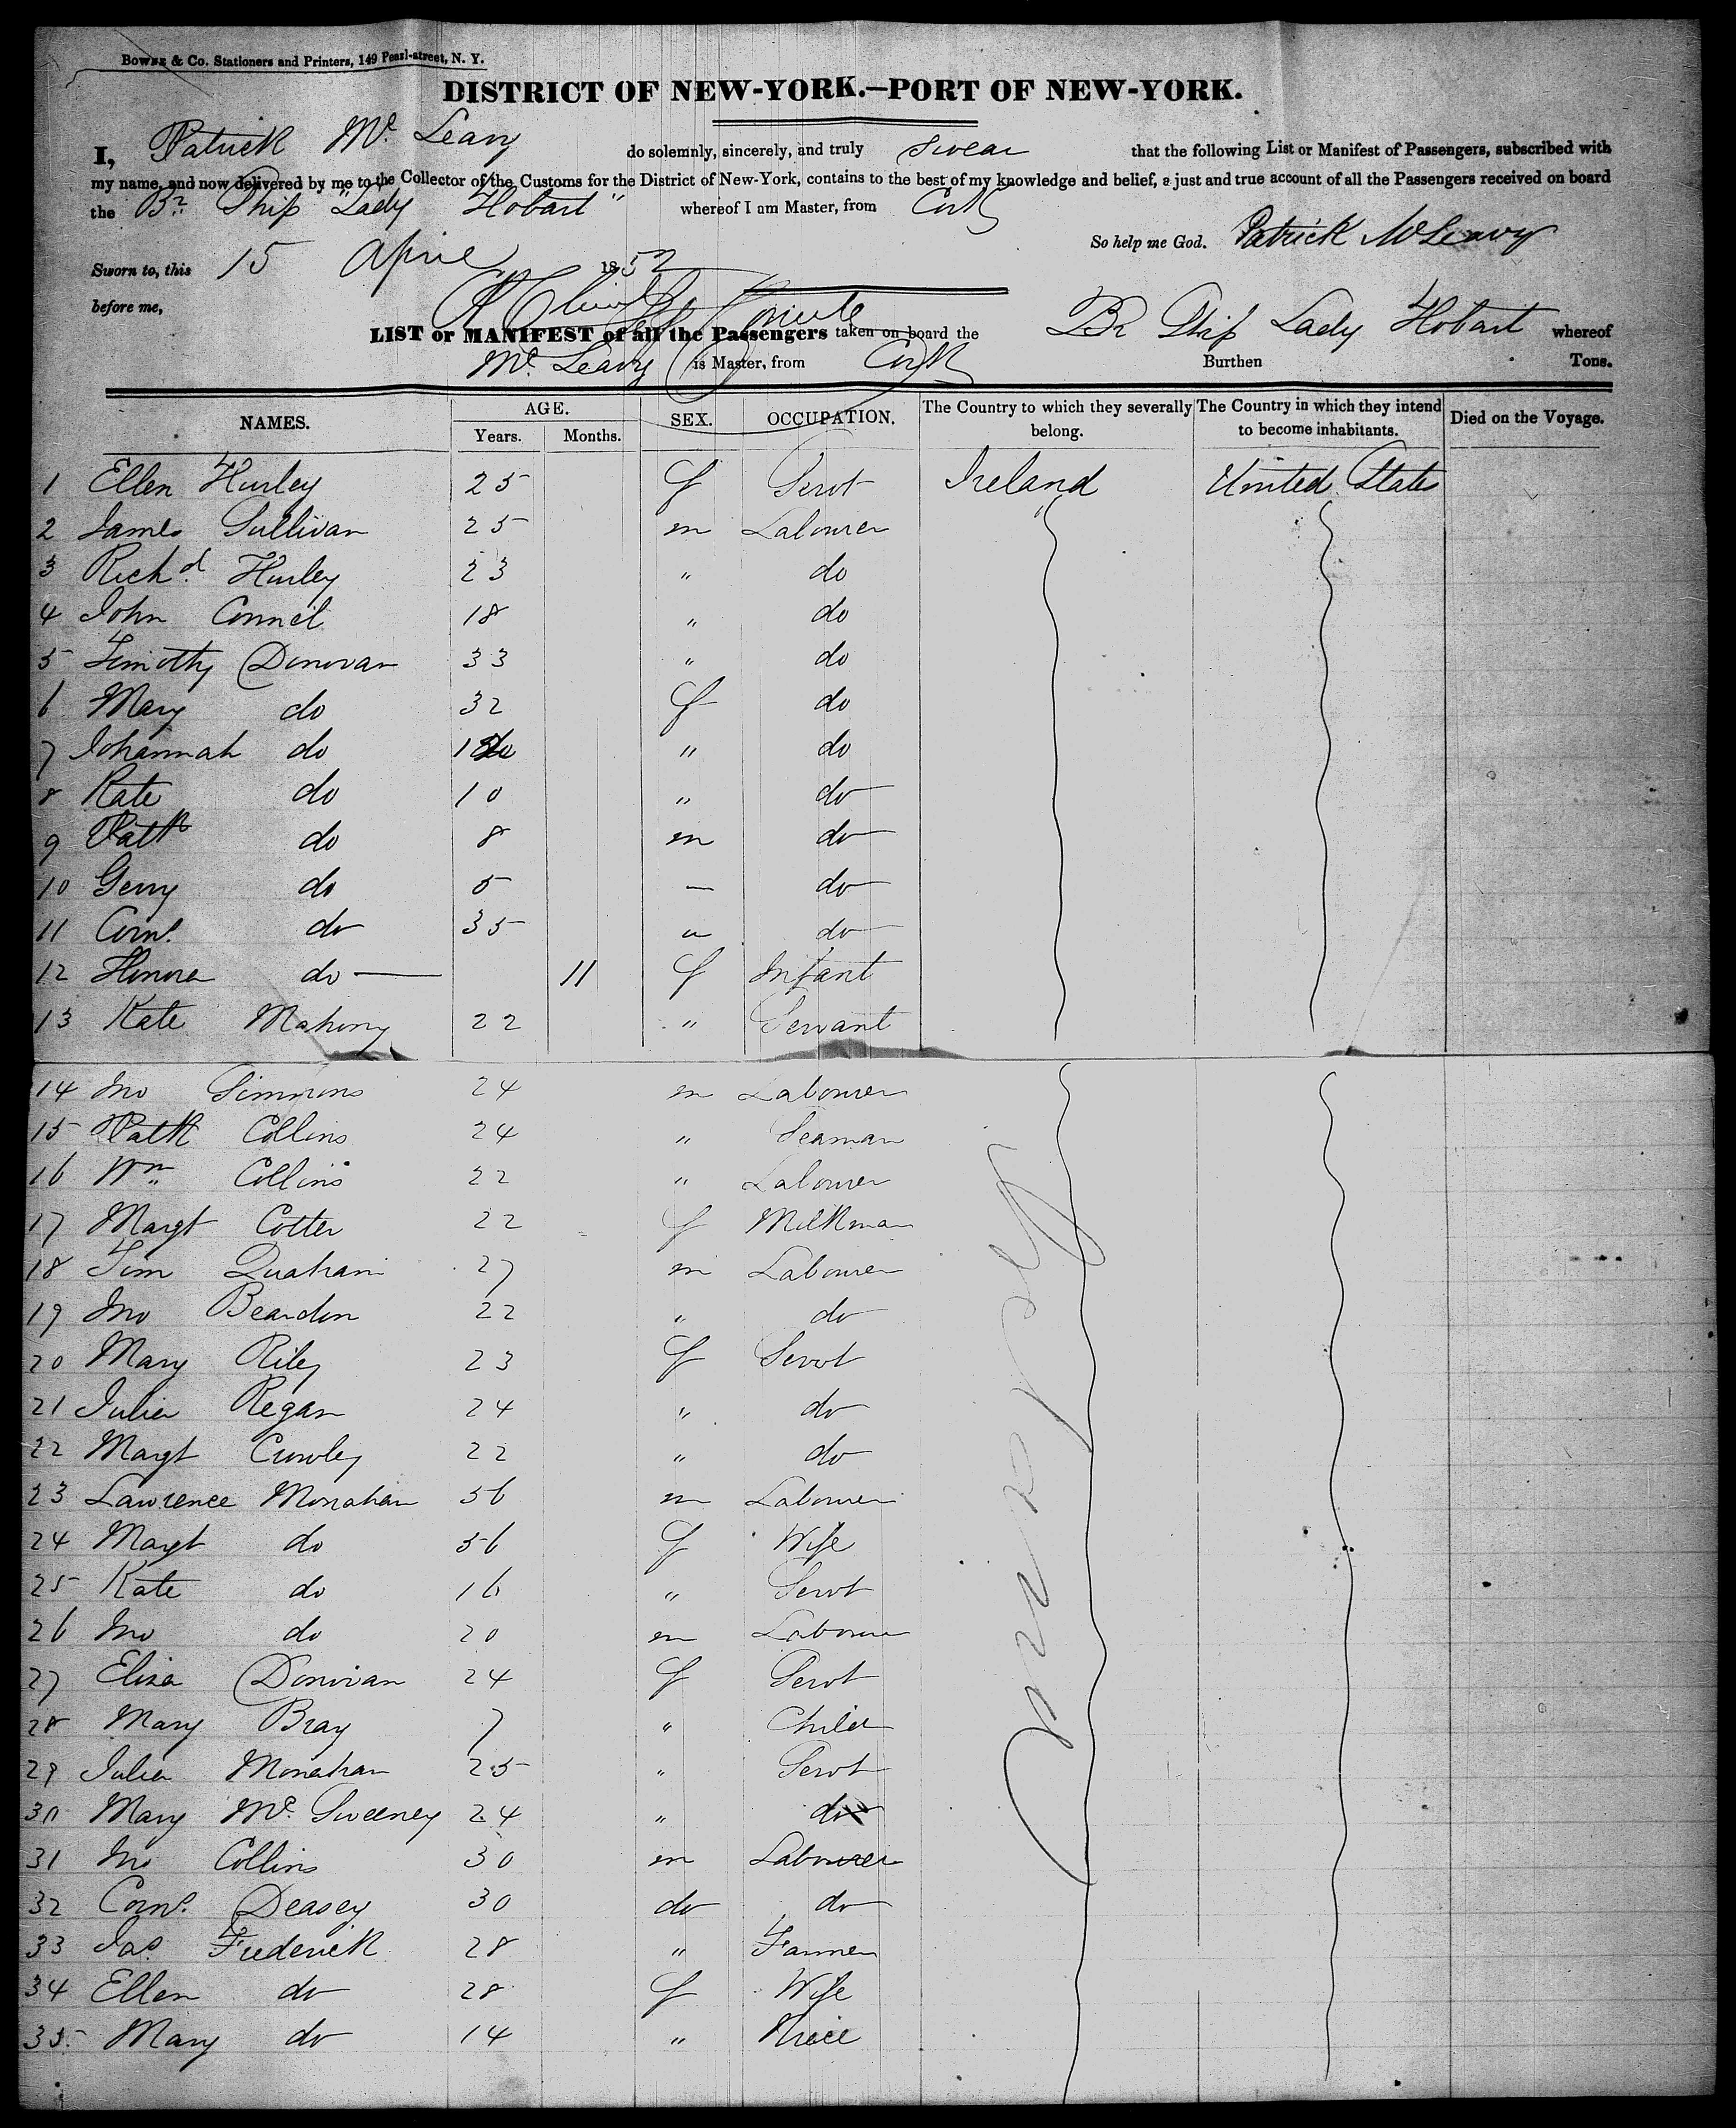 Bowne & Co. Stationers and Printers, 149 Pearl-street, N. Y.
DISTRICT OF NEW-YORK.—PORT OF NEW-YORK.
I, Patrick Mc Leavy do solemnly, sincerely, and truly swear that the following List or Manifest of Passengers, subscribed with
my name, and now delivered by me to the Collector of the Customs for the District of New-York, contains to the best of my knowledge and belief, a just and true account of all the Passengers received on board
the Br. Ship "Lady Hobart" whereof I am Master, from Cork
So help me God. Patrick McLeavy
Sworn to, this 15 April 1852
before me,
LIST or MANIFEST of all the Passengers taken on board the Br Ship Lady Hobart whereof
Mc Leavy is Master, from Cork Burthen Tons.
NAMES. AGE. SEX. OCCUPATION. The Country to which they severally belong. The Country in which they intend to become inhabitants. Died on the Voyage.
Years. Months.
1 Ellen Hurley 25 f Servt Ireland United States
2 James Sullivan 25 m Labourer
3 Richd. Hurley 23 " do
4 John Connel 18 " do
5 Timothy Donovan 33 " do
6 Mary do 32 f do
7 Johannah do " do
8 Kate do 10 " do
9 Patk do 8 m do
10 Gerry do 5 — do
11 Corns. do 35 " do
12 Honora do — 11 f Infant
13 Kate Mahony 22 " Servant
14 Jno Simmons 24 m Labourer
15 Patk Collins 24 " Seaman
16 Wm Collins 22 " Labourer
17 Margt Cotter 22 f Milkman
18 Tim 27 m Labourer
19 Jno Beardon 22 " do
20 Mary Riley 23 f Servt
21 Julia Regan 24 " do
22 Margt Crowley 22 " do
23 Lawrence Monahan 56 m Labourer
24 Margt do 56 f Wife
25 Kate do 16 " Servt
26 Jno do 20 m Labourer
27 Eliza Donovan 24 f Servt
28 Mary Bray 7 " Child
29 Julia Monahan 25 " Servt
30 Mary Mc. Sweeney 24 " do
31 Jno Collins 30 m Labourer
32 Corns. Deasey 30 do do
33 Jas. Frederick 28 " Farmer
34 Ellen do 28 f Wife
35 Mary do 14 " Niece